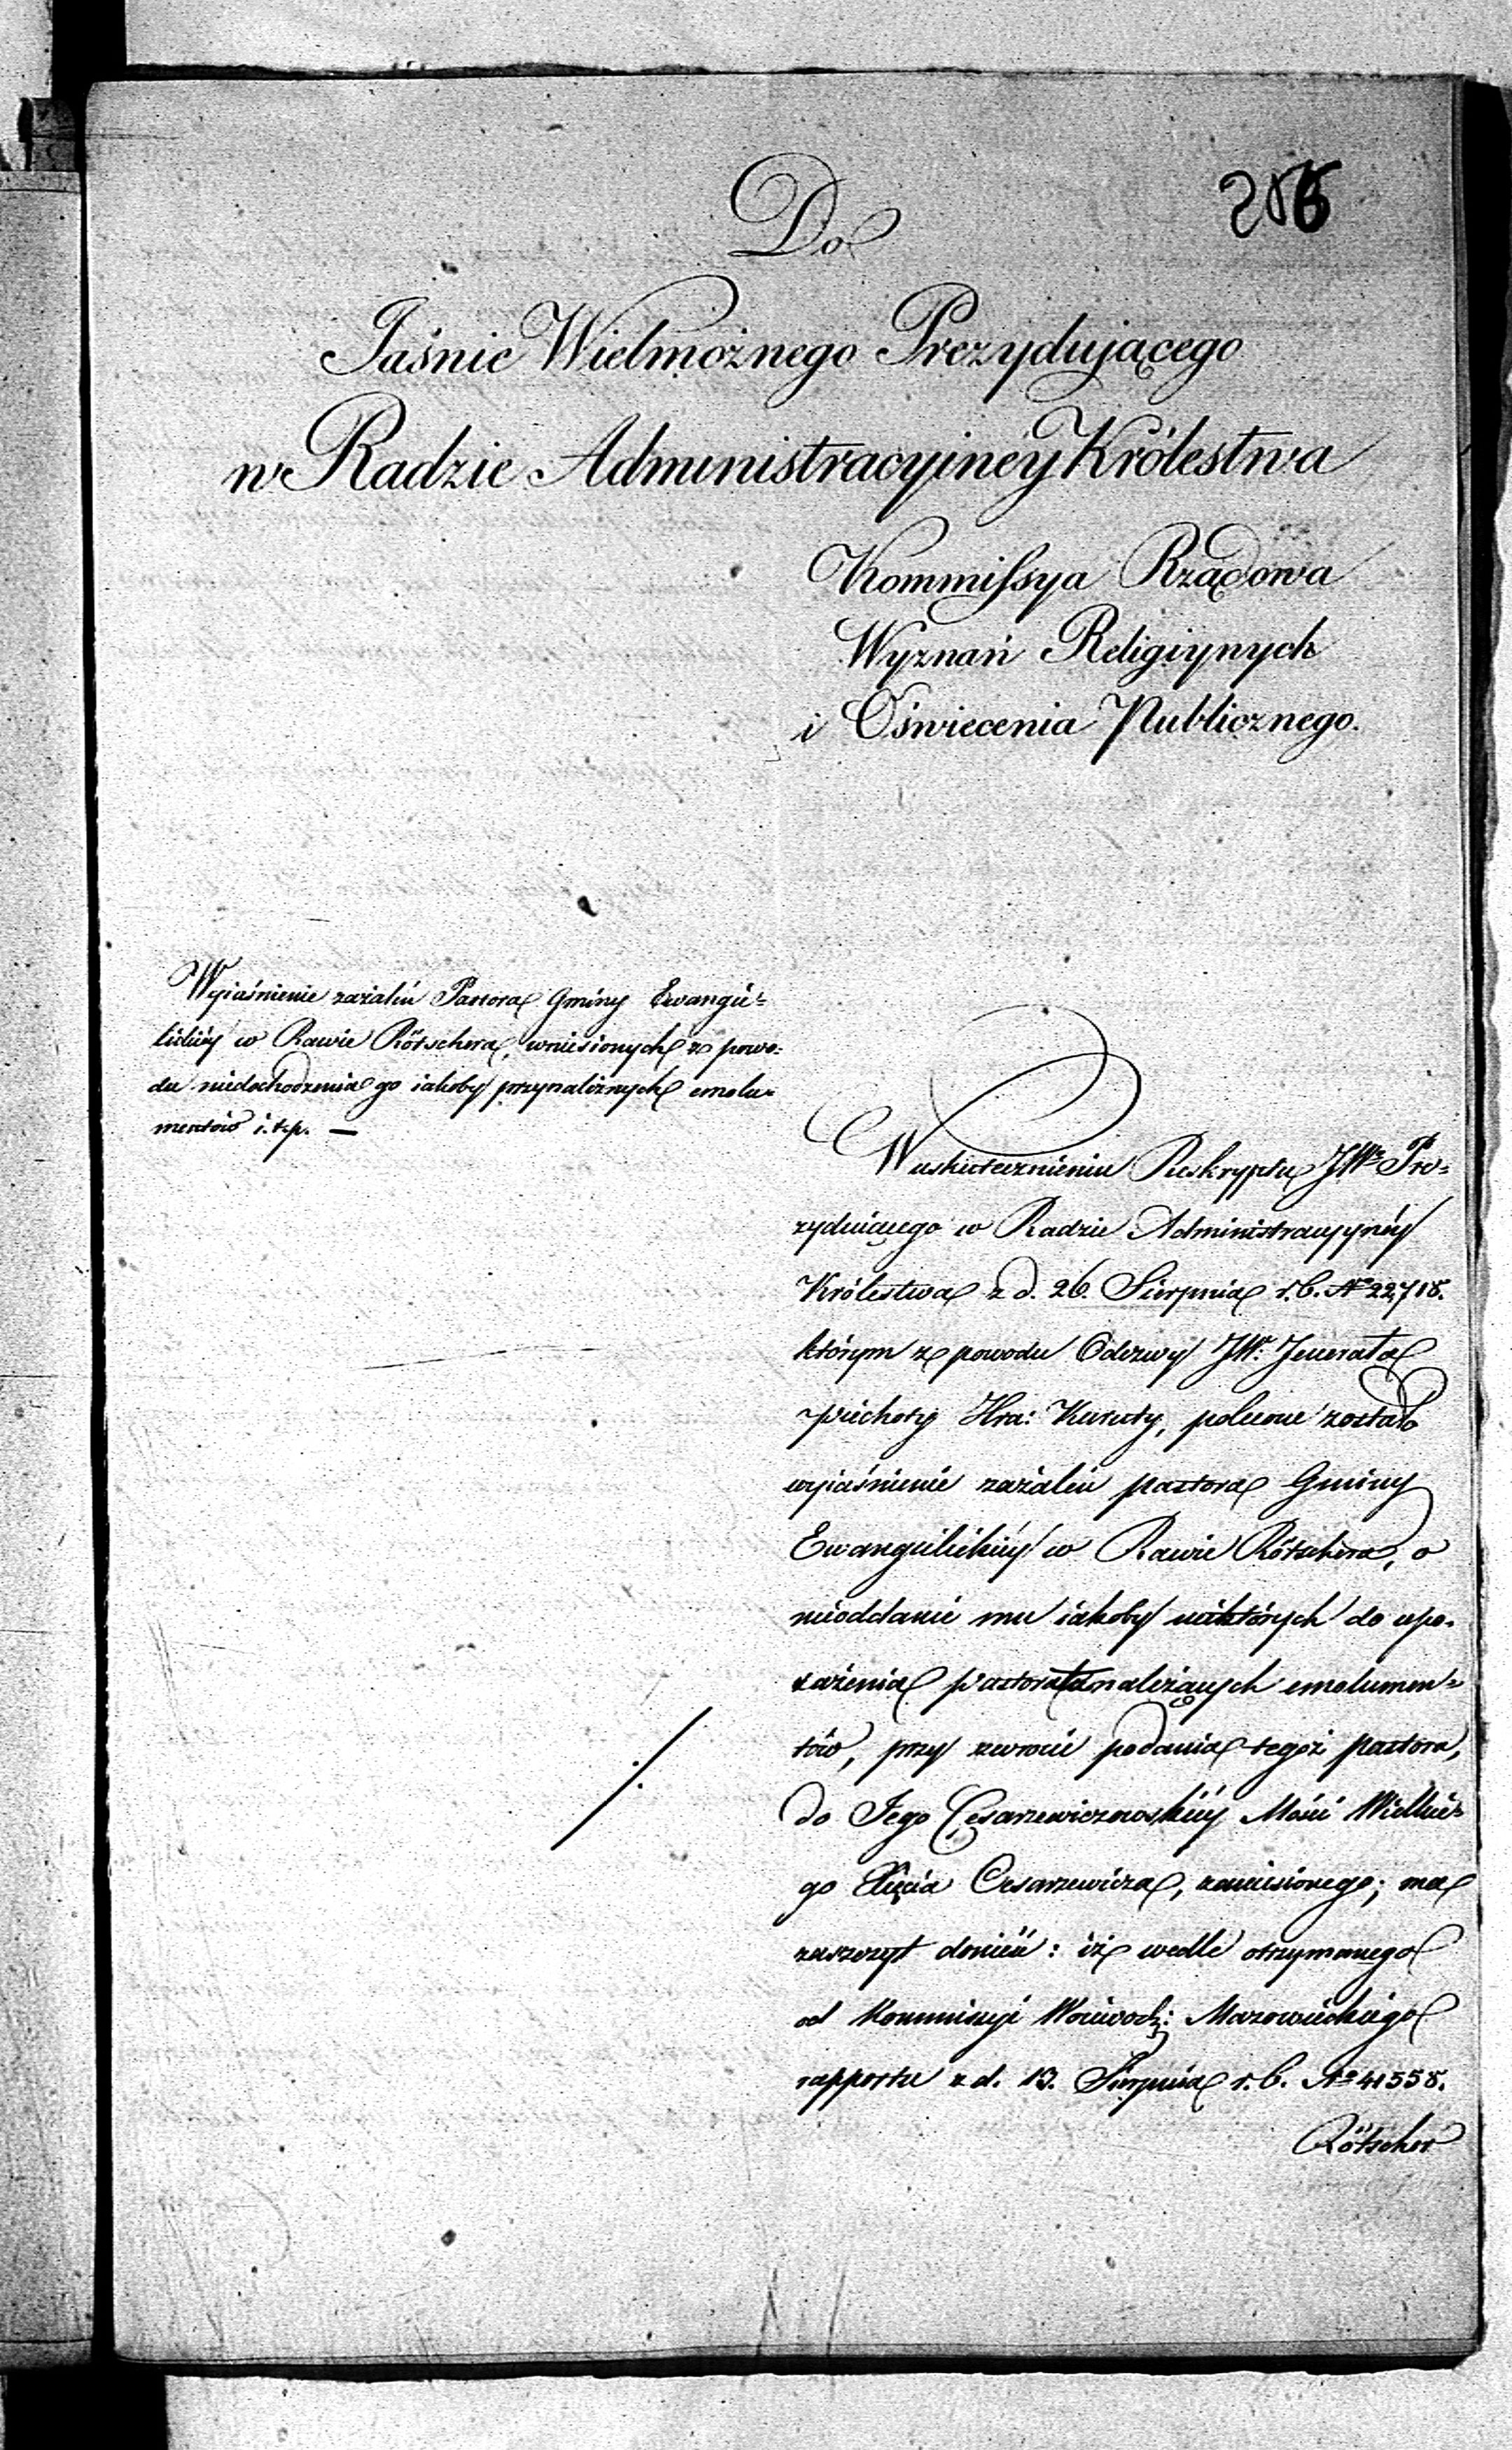 Do
Jaśnie Wielmożnego Prezydującego
w Radzie Administracyinéy Królestwa
Kommissya Rządowa
Wyznań Religiynych
i Oświecenia Publicznego.
Wyiaśnienie zażaleń Pastora Gminy Ewangie-
lickiéy w Rawie Rötschera, wniesionych z powo-
du niedochodzenia go iakoby przynależnych emolu-
mentów i.t.p. —
W uskutecznieniu Reskryptu JWgo Pre-
zyduiącego w Radzie Administracyynéy
Królestwa z d. 26. Sierpnia r.b. No 22,718.
którym z powodu Odezwy JWo Jenerała
piechoty Hra: Kuruty, polecone zostało
wyiaśnienie zażaleń pastora Gminy
Ewangelickiéy w Rawie Rötschera, o
nieoddanie mu iakoby niektórych do upo-
sażenia pastorata należących emolumen-
tów, przy zwrocie podania tegoż pastora,
do Jego Cesarzewiczowskiéy Mości Wielkie-
go Xięcia Cesarzewicza, zaniesionego; ma
zaszczyt donieść: iż wedle otrzymanego
od Kommissyi Woiewodz: Mazowieckiego
rapportu z d. 13. Sierpnia r.b. No 41558.
Rötscher